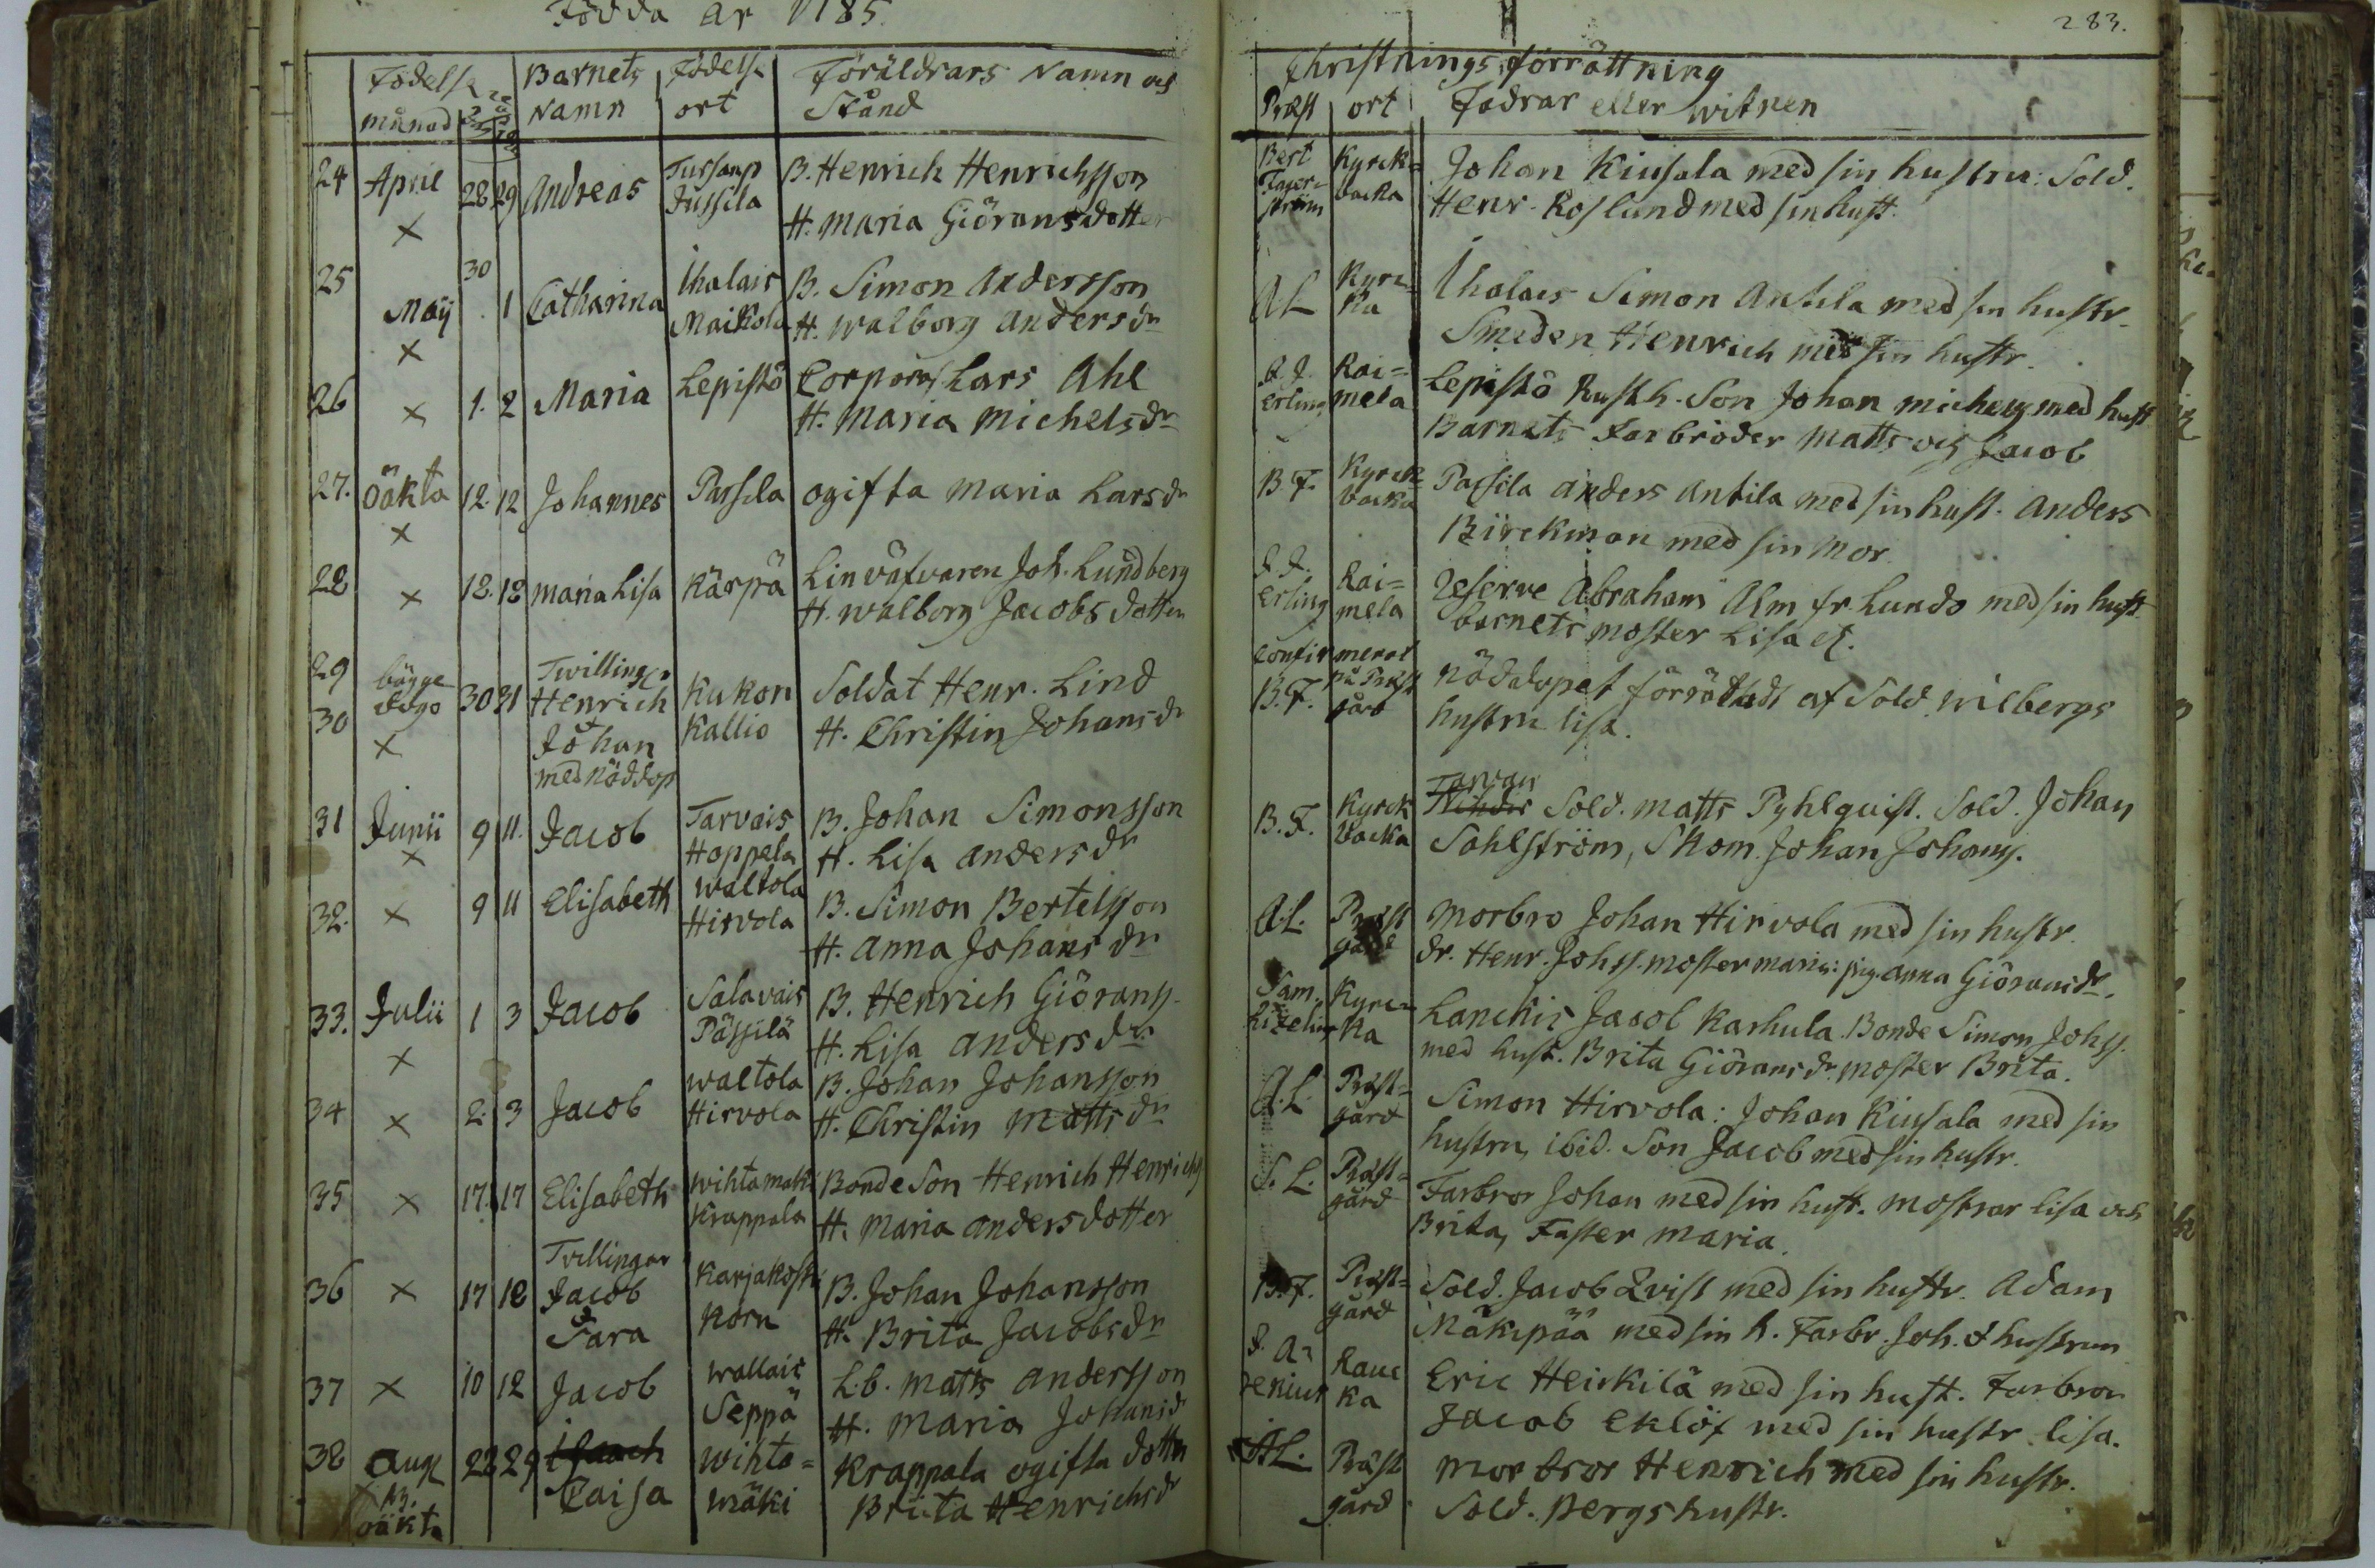 Födda År 1785
Födelse
månad
Barnets
Namn
Födelse
ort
Föräldrars Namn och
Stånd
24 April 28 29 Andreas
Jussila
B. Henrich Henrichsson
H. Maria Giöransdotter
25 30
Maij 1 Catharina
Ihalais
Maikola
B. Simon Andersson
H. Walborg Andersdr
26 × 1. 2 Maria Lepistö
Corporal Lars Ahl
H. Maria Michelsdr
27. Oäkta 12. 12 Johannes Passila ogifta Maria Larsdr
×
28 × 18. 18 Maria Lisa Kärpä
Linväfvaren Joh. Lundberg
H. Walborg Jacobsdotter
29 bägge
30 dogo
×
30 31
Twillingr
Henrich
Johan
med nöddop
Kukon
Kallio
Soldat Henr. Lind
H. Christin Johansdr
31 Junii 9 11. Jacob
×
Tarvais
Hoppela
B. Johan Simonsson
H. Lisa Andersdr
32. × 9 11 Elisabeth
Waltola
Hirvola
B. Simon Bertelsson
H. Anna Johansdr
33. Julii 1 3 Jacob
×
Salavais
Pässilä
B. Henrich Giörans.
H. Lisa Andersdr.
34 × 2. 3 Jacob
Waltola
Hirvola
B. Johan Johansson
H. Christin Mattsdr
35 × 17. 17 Elisabeth
Wihtamäki
Krappala
Bonde Son Henrich Henrichs
H. Maria Andersdotter
36 × 17 18
Tvillingar
Jacob
&
Sara
Karjakoski
Korn
B. Johan Johansson
H. Brita Jacobsdr
37 × 10 12 Jacob
Wallais
Seppä
L.b. Matts Andersson
H. Maria Johansdr
38 Aug 28 29
×
oäkta
Caisa
Wihta=
mäki
Krappala ogifta dotter
Brita Henrichsdr
283.
Christnings förrättning
Präst ort Fadrar eller witnen
Kyrck=
backa
Johan Kiusala med sin hustru: Sold.
Henr. Roslund med sin hust.
AL Kyrc=
ka
Ihalais Simon Antila med sin hustr.
Smeden Henrich med sin hustr.
Erling
Rai=
mela
Lepistö Rusth. Son Johan Michels med hust
Barnets Farbröder Matts och Jacob
B. F. Kyrck
backa
Passila Anders Antila med sin hust. Anders
Birckman med sin Mor
Erling
Rai=
mela
Reserve Abraham Alm fr. Lundo med sin hust
barnets moster Lisa
Confirmerat
på Präst
B. F. gård
Nöddopet förrättadt af Sold. Wilbergs
hustru Lisa.
B. F. Kyrck
backa
Tarvan
Sold. Matts Pyhlquist. Sold. Johan
Sahlström, Skom. Johan Johans.
A. L. Präst
gård
Morbro Johan Hirvola med sin hustr.
dr. Henr. Johss. moster Maria: pig. Anna Giöransdr.
Sam.
Kyrc=
ka
Lanckis Jacob Karhula. Bonde Simon Johss.
med hust. Brita Giöransdr. Moster Brita.
A. L. Präst=
gård
Simon Hirvola: Johan Kiusala med sin
hustru, ibid. Son Jacob med sin hustr.
S. L. Präst=
gård
Farbror Johan med sin hust. Mostrar Lisa och
Brita, Faster Maria.
B. F. Präst=
gård
Sold. Jacob Qvist med sin hustr. Adam
Mäkipää med sin h. Farbr. Joh. & hustrun
Rauc
ka
Eric Heickilä med sin hust. Farbror
Jacob Eklöf med sin hustr Lisa.
AL. Präst
gård
Morbror Henrich med sin hustr.
Sold. Bergs hustr.